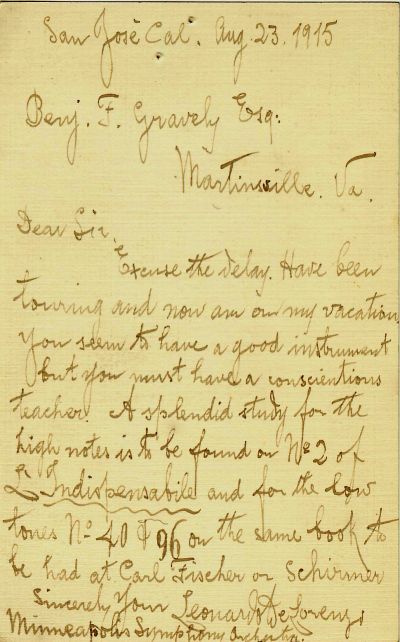 San José Cal. Aug. 23. 1915
Benj. F. Gravely Esq:
Martinsville. Va.
Dear Sir,
Excuse the delay. Have been
touring and now am on my vacation.
You seem to have a good instrument
but you must have a conscientious
teacher. A splendid study for the
high notes is to be found on No 2 of
L'Indispensabile and for the low
tones No. 40 & 96 on the same book to
be had at Carl Fischer or Schirmer
Sincerely Your Leonardo De Lorenzo
Minneapolis Symphony Orchestra.